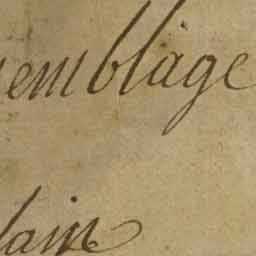 emblage
lain